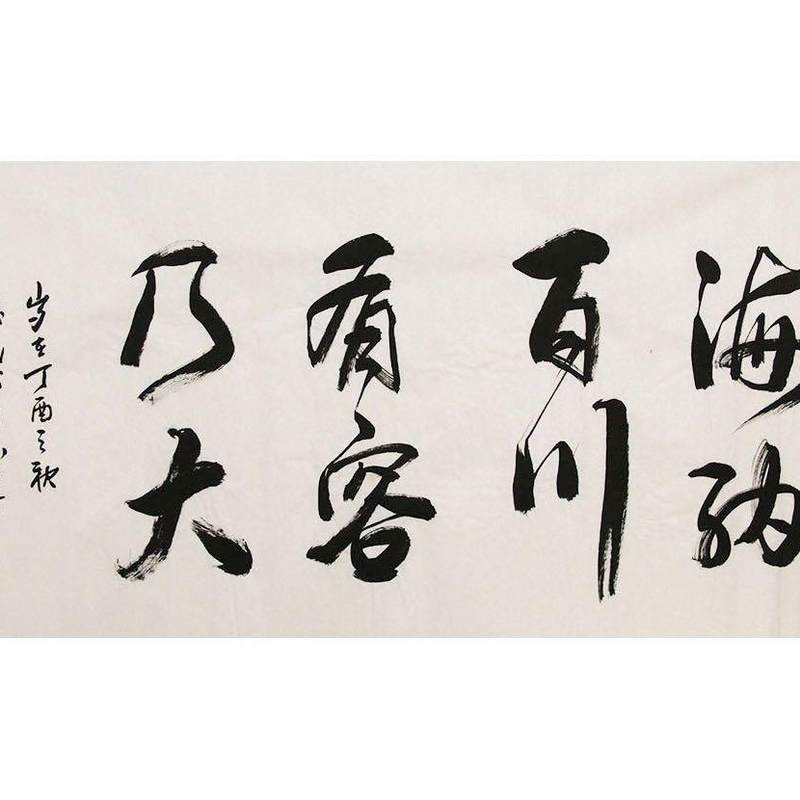 海纳
百川
有容
乃大
岁在丁酉之秋